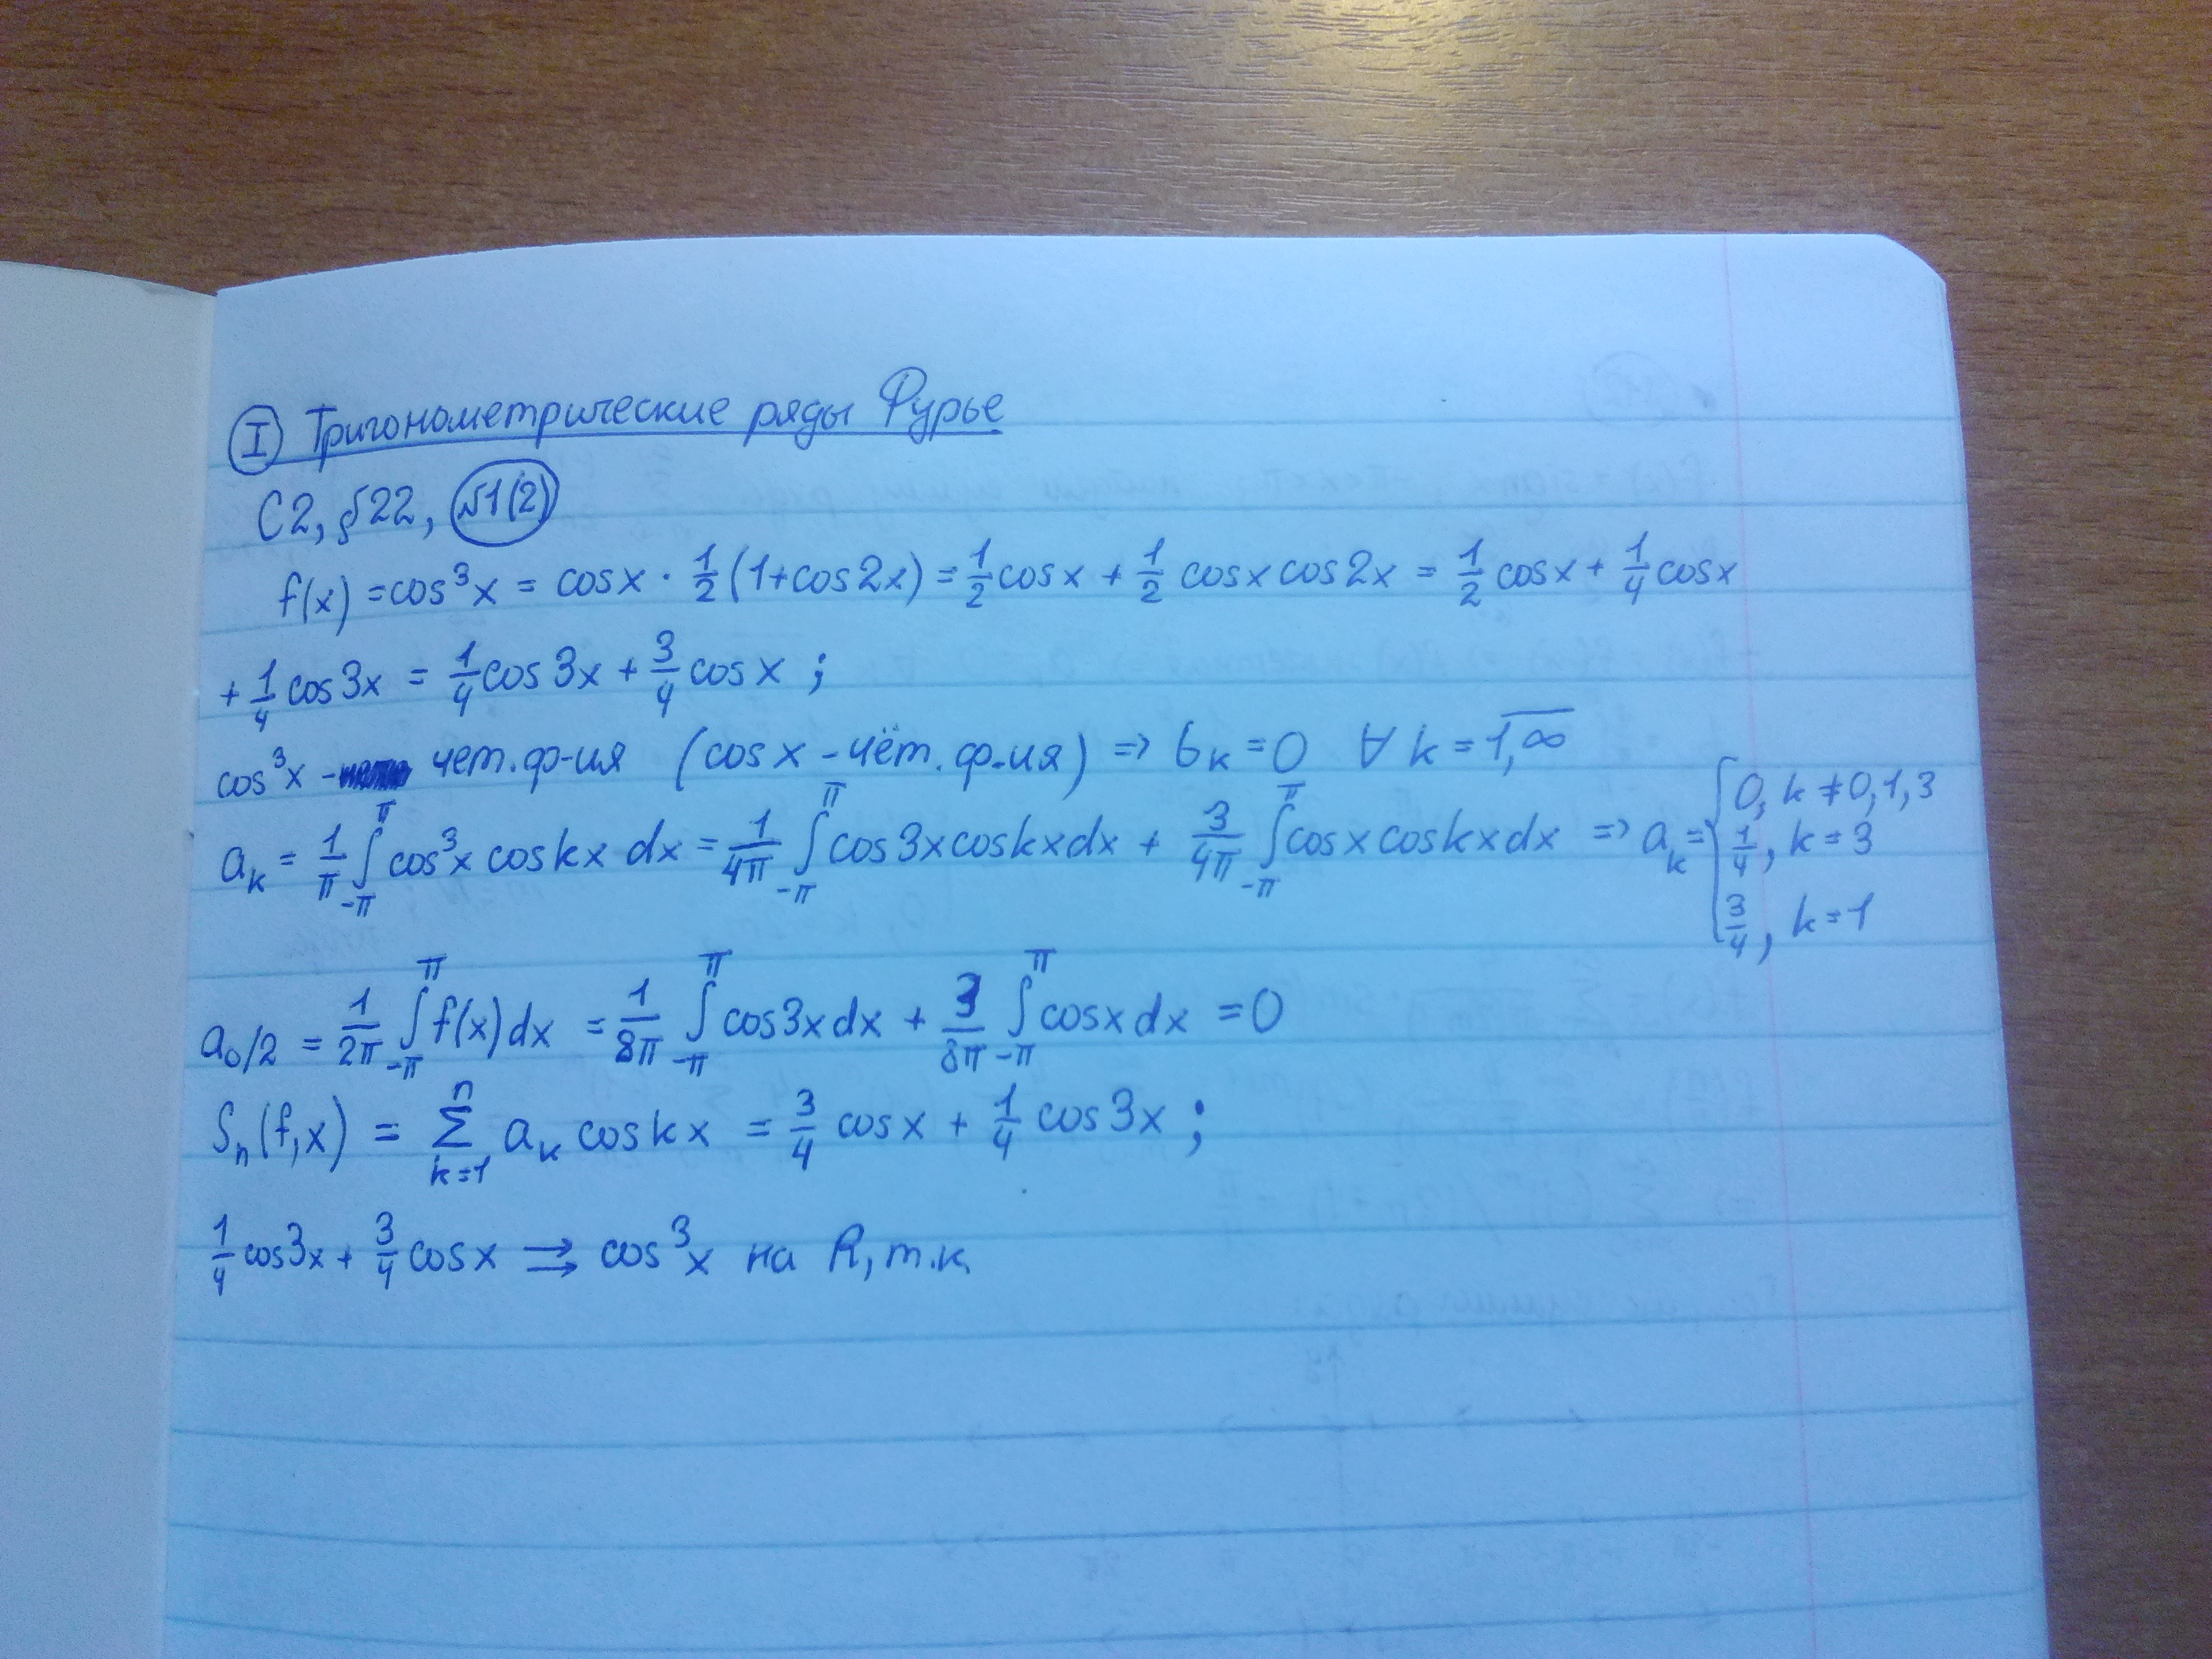 I Тригонометрические ряды Фурье
С2, §22, №1(2)
f(x) = cos³x = cosx · 1/2 (1+cos2x) = 1/2 cosx + 1/2 cosx cos2x = 1/2 cosx + 1/4 cosx
+ 1/4 cos3x = 1/4 cos3x + 3/4 cosx ;
cos³x - чет. ф-ия (cosx - чёт. ф-ия) => bₖ = 0 ∀ k = 1,∞
aₖ = 1/π ∫_{-π}^{π} cos³x coskx dx = 1/4π ∫_{-π}^{π} cos3x coskx dx + 3/4π ∫_{-π}^{π} cosx coskx dx => aₖ = { 0, k ≠ 0,1,3
1/4, k = 3
3/4, k = 1
a₀/2 = 1/2π ∫_{-π}^{π} f(x)dx = 1/8π ∫_{-π}^{π} cos3x dx + 3/8π ∫_{-π}^{π} cosx dx = 0
Sₙ(f,x) = Σ_{k=1}^{n} aₖ coskx = 3/4 cosx + 1/4 cos3x ;
1/4 cos3x + 3/4 cosx ⇉ cos³x на R, т.к.